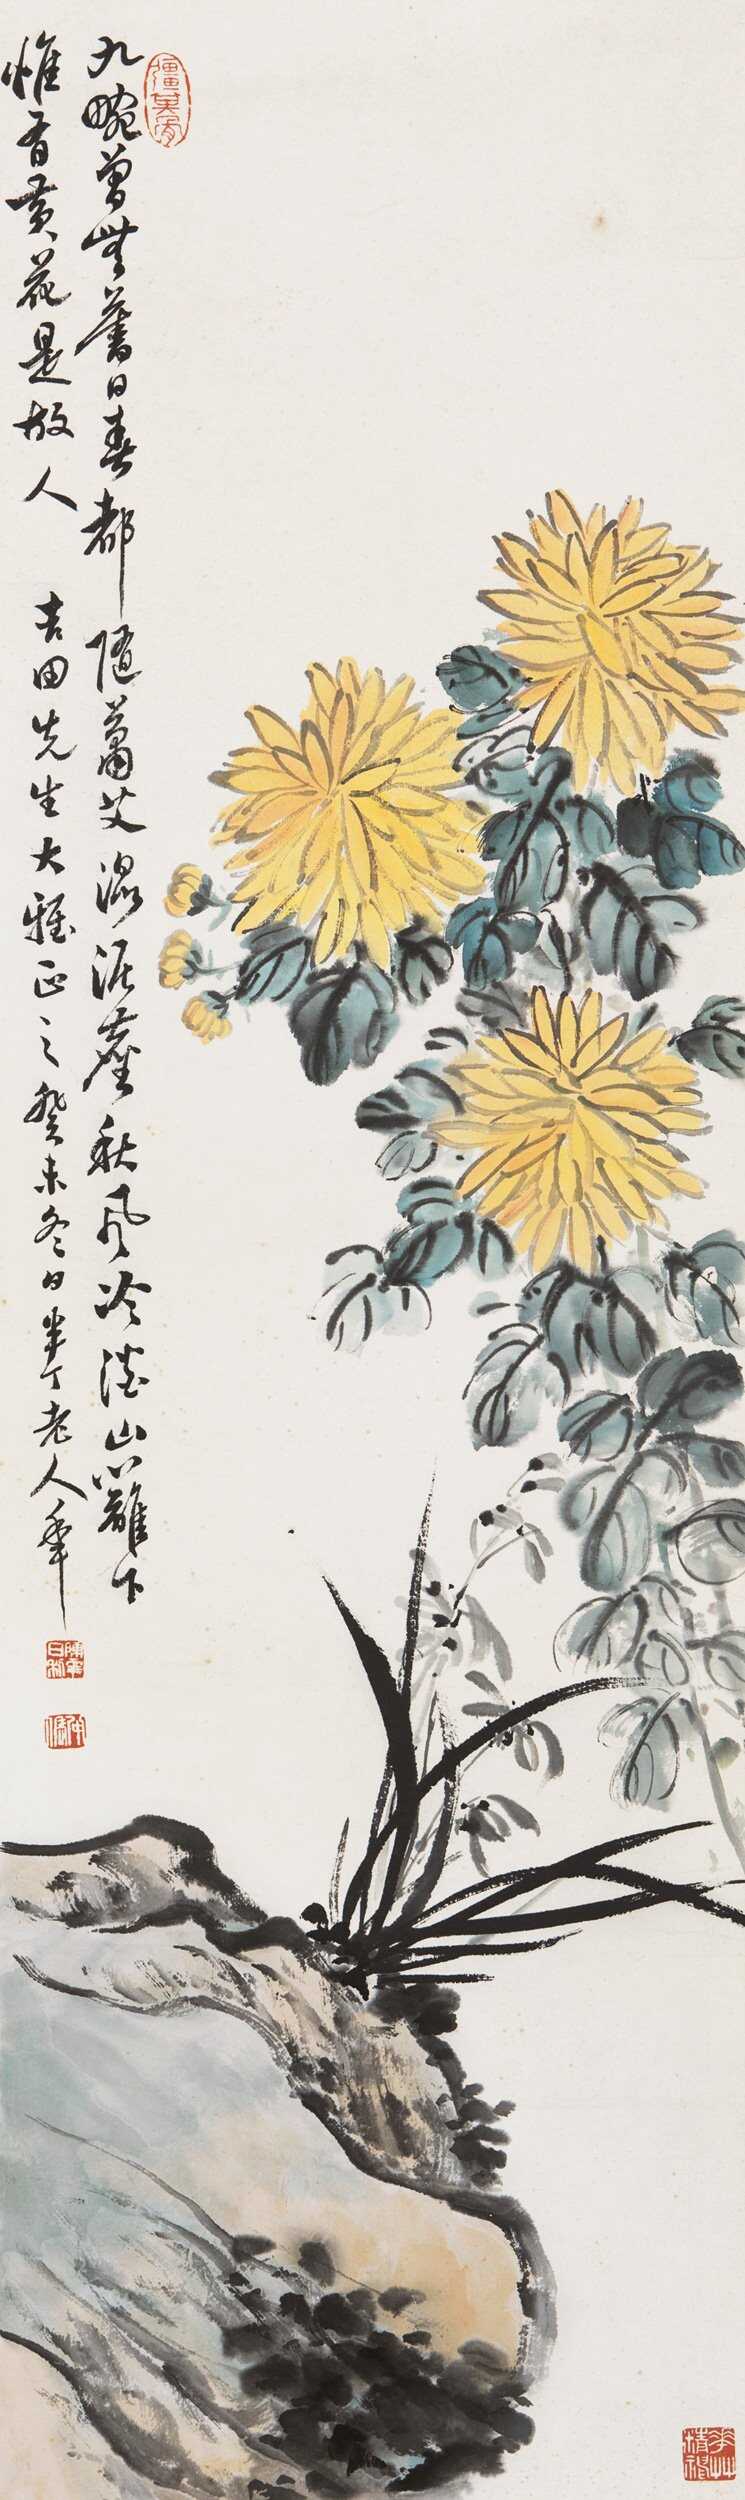 九畹曾無舊日春都隨蕭艾混泥塵秋風冷澹山籬下
惟有黃花是故人
吉田先生大雅正之癸未冬日半丁老人年
陳年日利